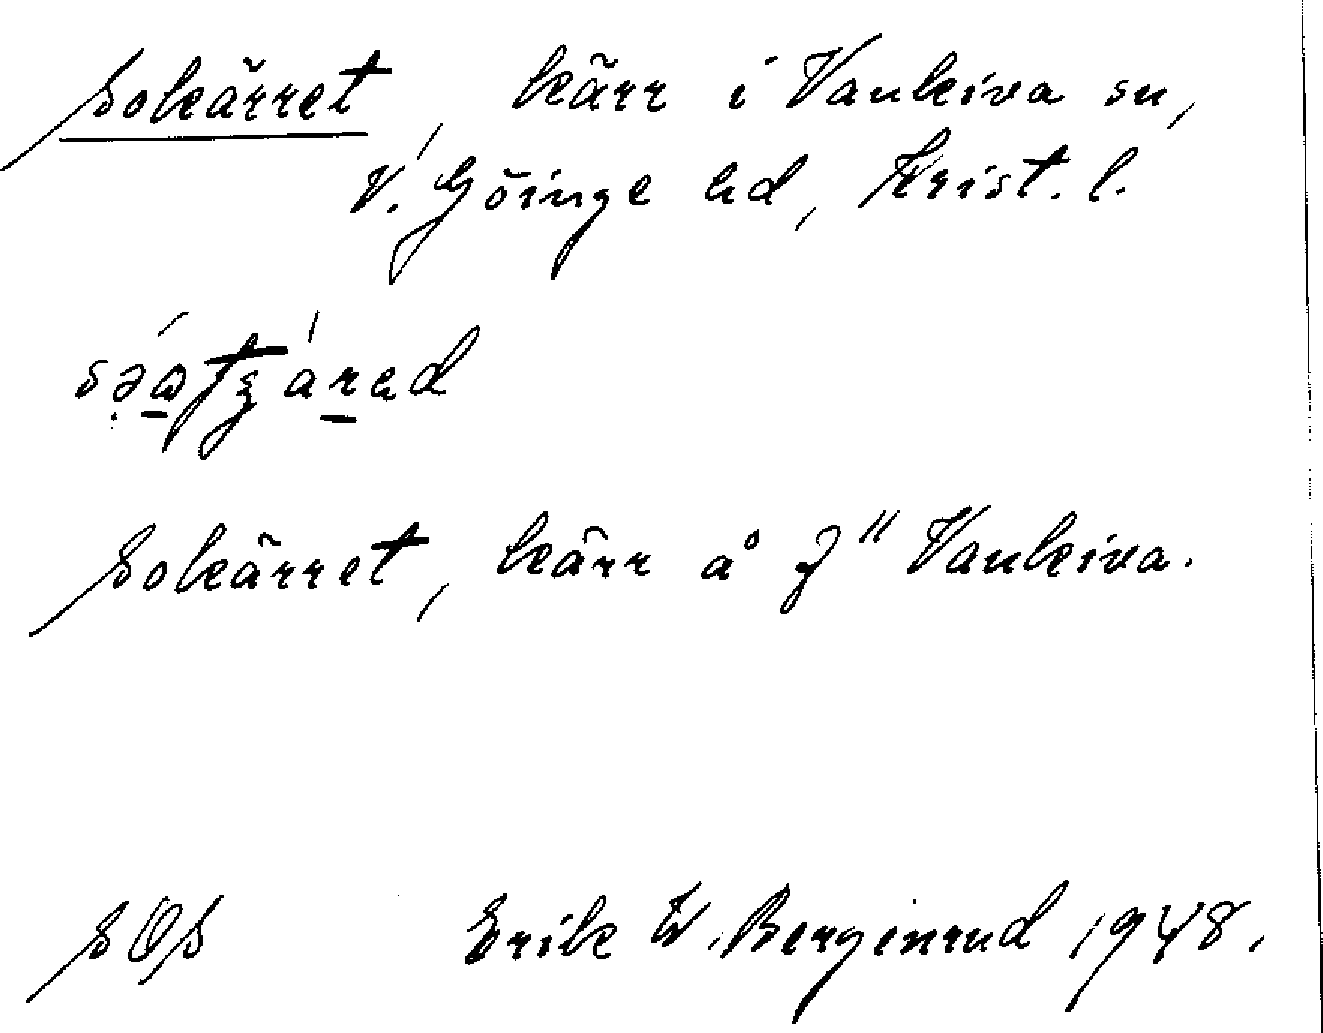 Sokärret, kärr i Vankiva sn,
V. Göinge hd, Krist. l.
Sokärret, kärr å J" Vankiva.
SOS Erik W. Bergenrud 1948.